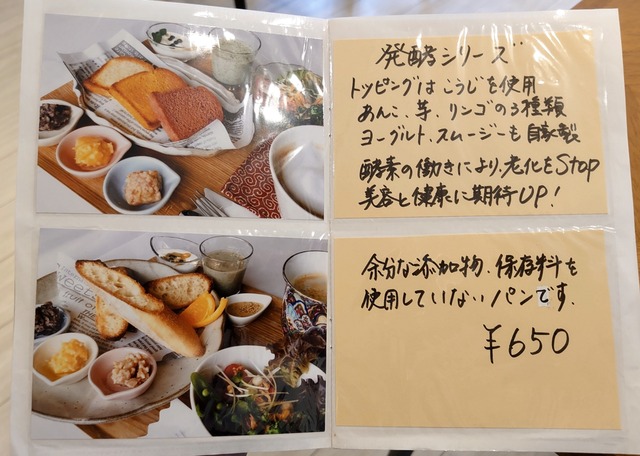 発酵シリーズ
トッピングはこうじを使用
あんこ、芋、リンゴの3種類
ヨーグルト、スムージーも自家製
酵素の働きにより、老化をStop
美容と健康に期待UP!
余分な添加物、保存料を
使用していないパンです.
¥650